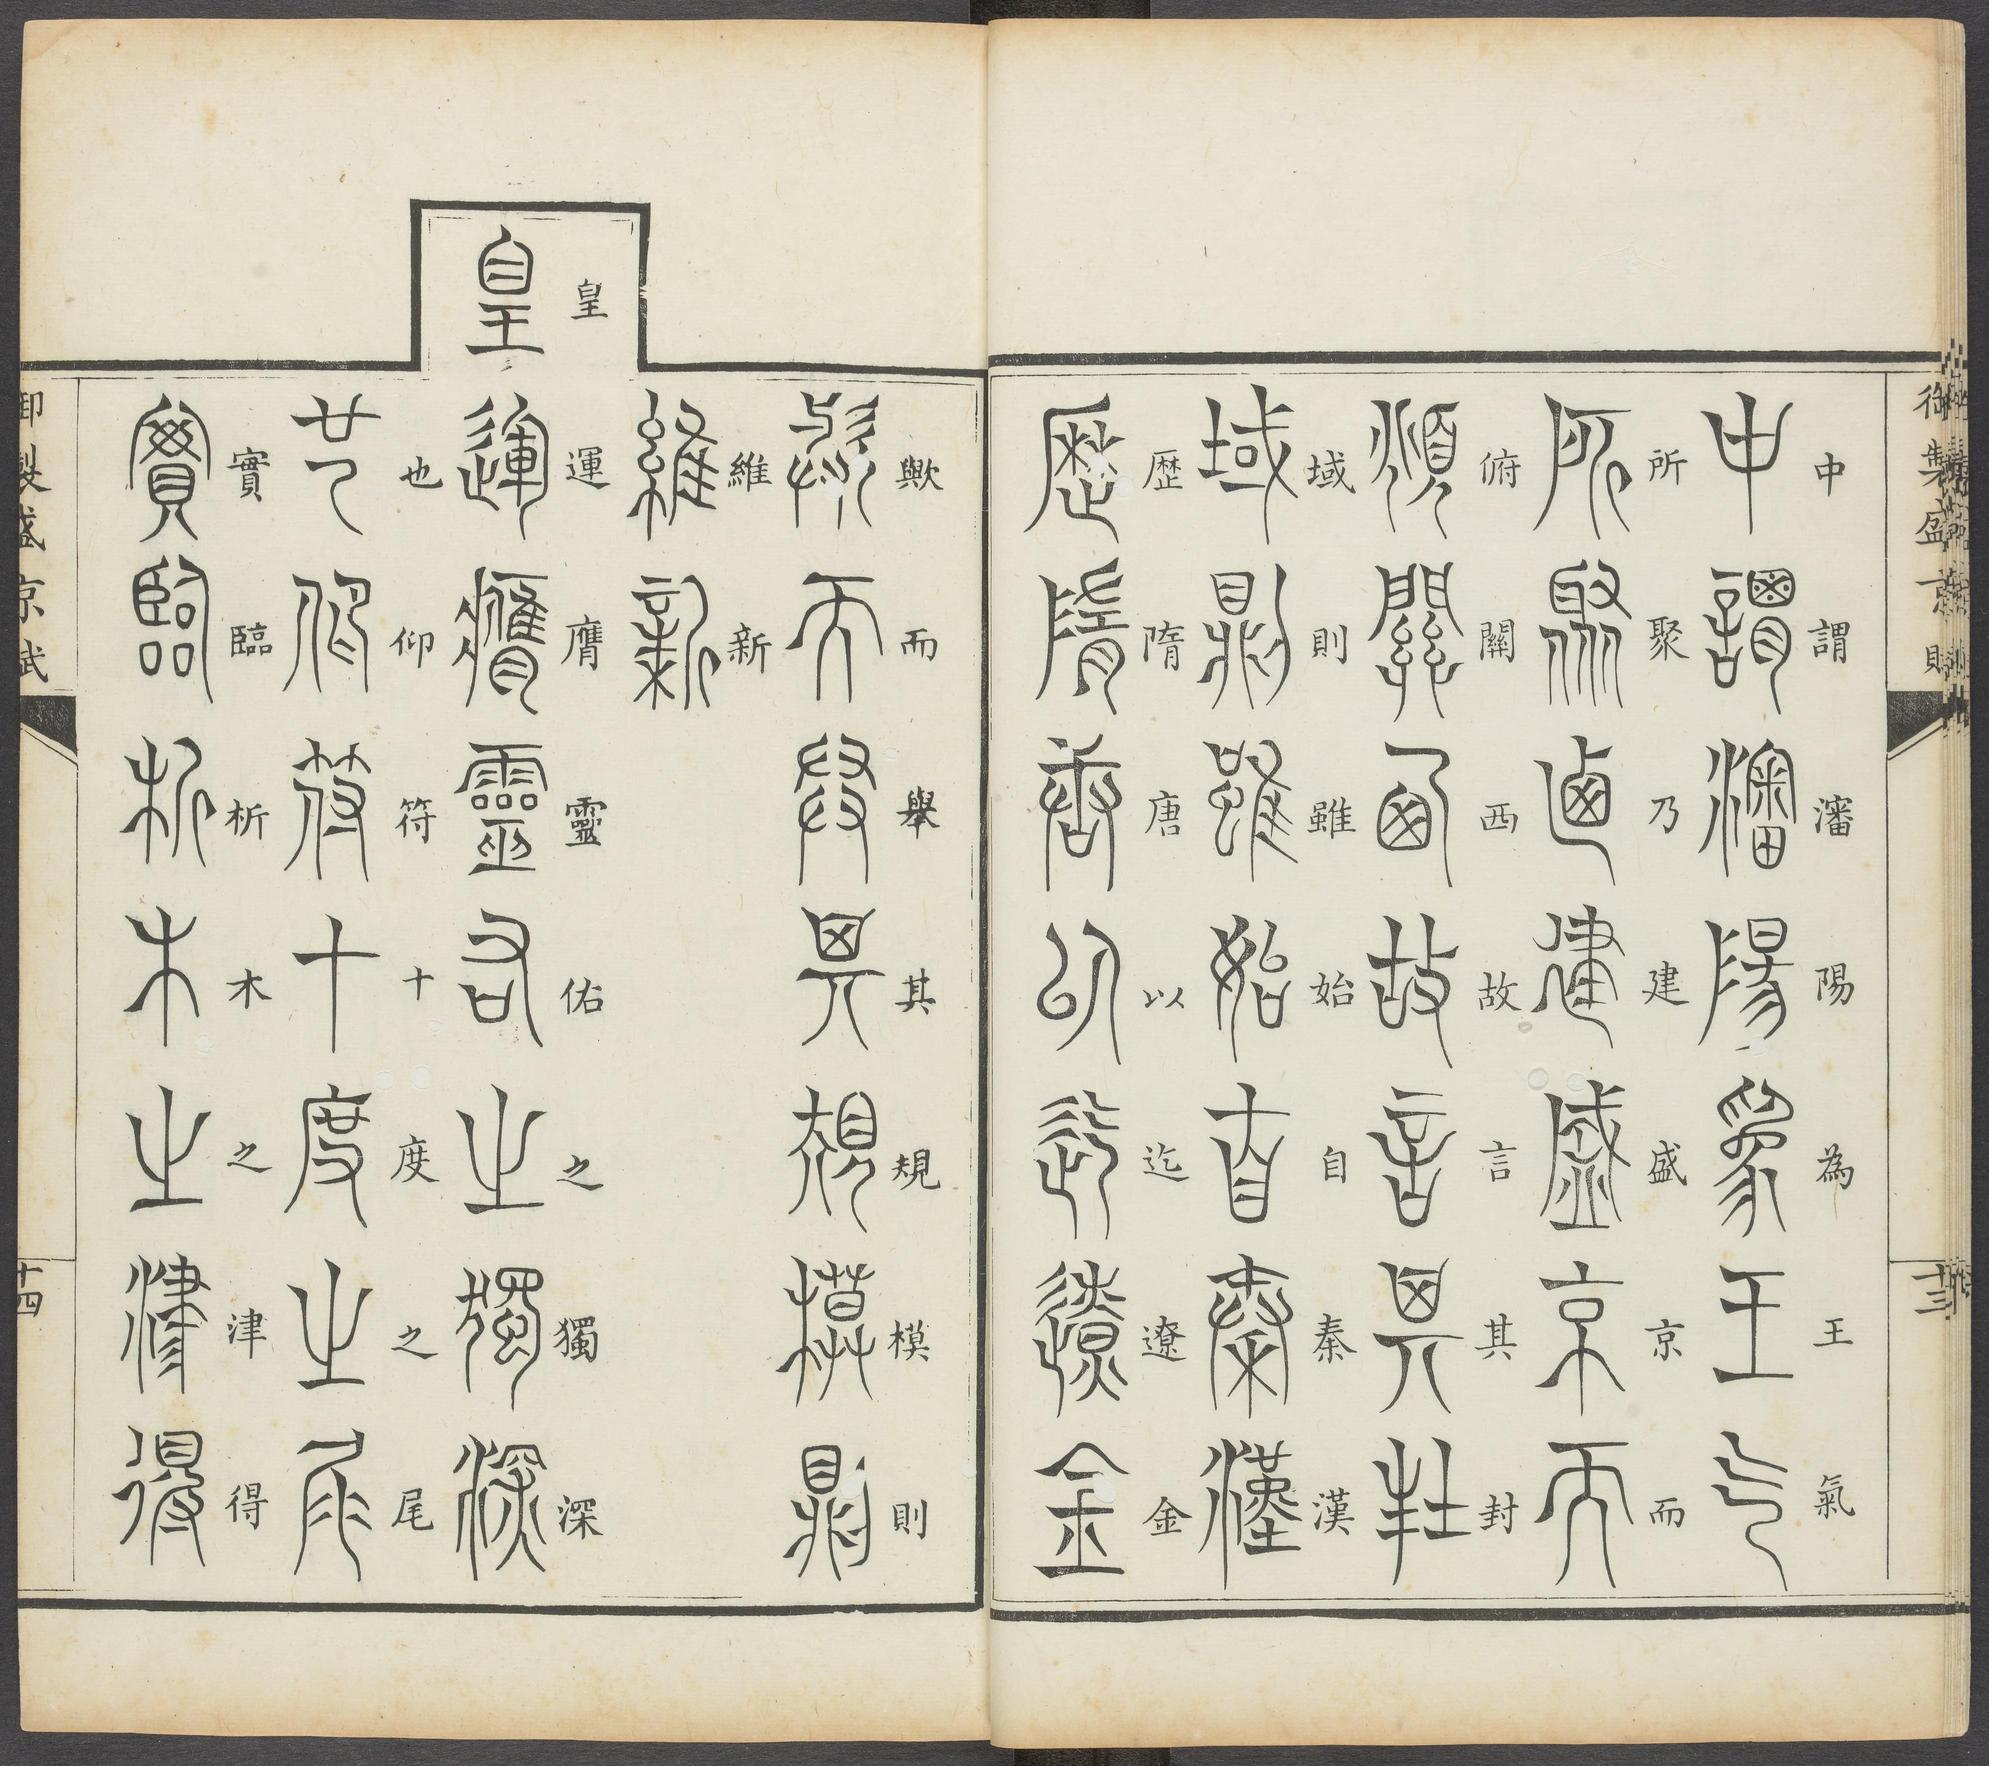 御製盛京賦
十三
中謂瀋陽為王氣
所聚乃建盛京而
俯關西故言其封
域則雖始自秦漢
歴隋唐以迄遼金
歟而舉其規模則
維新
皇運膺靈佑之獨深
也仰符十度之尾
實臨析木之津得
御製盛京賦
十四